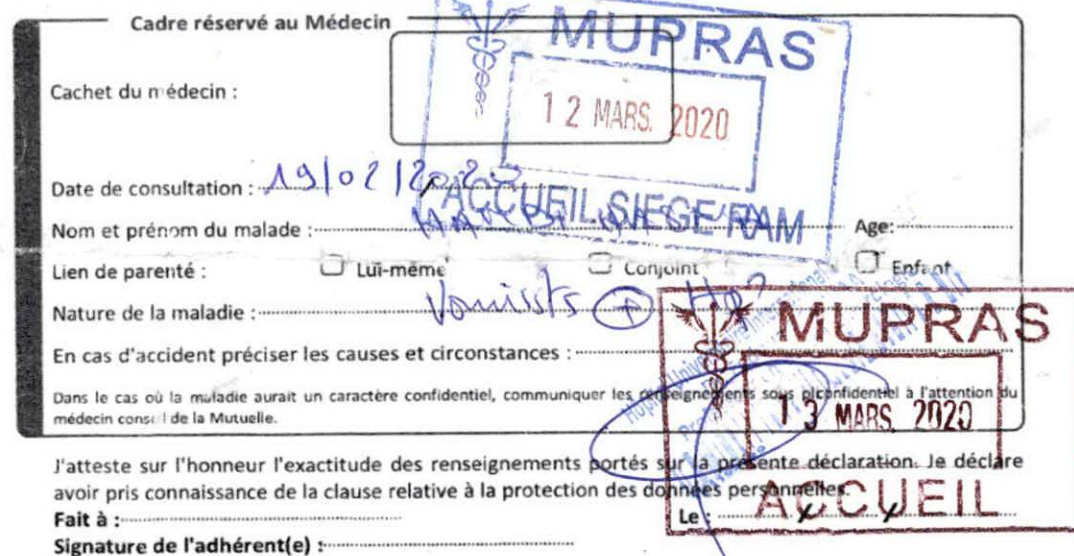 Cadre réservé au Médecin
MUPRAS
Cachet du médecin :
12 MARS. 2020
Date de consultation : 19/02/2020
ACCUEIL SIEGE RAM
Nom et prénom du malade :
Age:
Lien de parenté : Lui-même Conjoint Enfant
Nature de la maladie : Vomissts
MUPRAS
En cas d'accident préciser les causes et circonstances :
Dans le cas où la maladie aurait un caractère confidentiel, communiquer les renseignements sous pli confidentiel à l'attention du
médecin conseil de la Mutuelle.
13 MARS 2020
J'atteste sur l'honneur l'exactitude des renseignements portés sur la présente déclaration. Je déclare
avoir pris connaissance de la clause relative à la protection des données personnelles.
ACCUEIL
Fait à :
Le :
Signature de l'adhérent(e) :